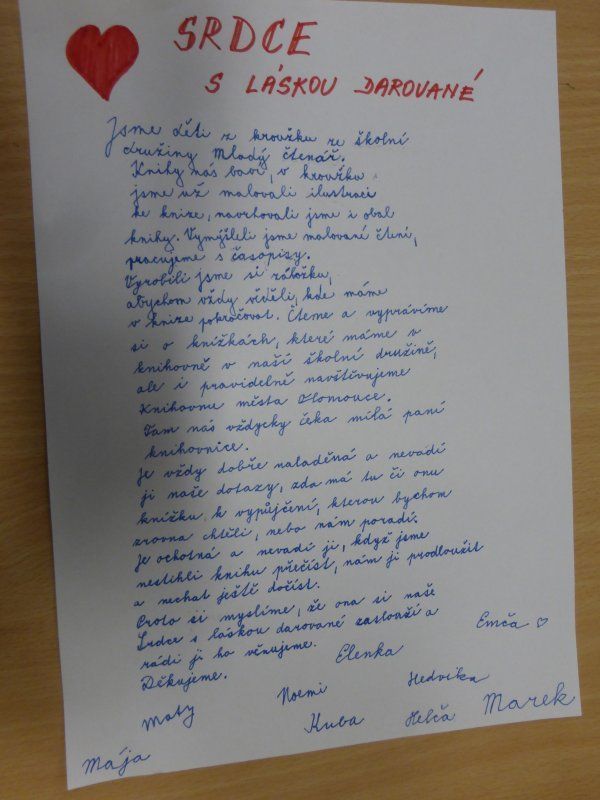 SRDCE
S LÁSKOU DAROVANÉ
Jsme děti z kroužku ze školní
družiny Mladý čtenář.
Knihy nás baví, v kroužku
jsme už malovali ilustraci
ke knize, navrhovali jsme i obal
knihy. Vymýšleli jsme malované čtení,
pracujeme s časopisy.
Vyrobili jsme si záložku,
abychom vždy věděli, kde máme
v knize pokračovat. Čteme a vyprávíme
si o knížkách, které máme v
knihovně v naší školní družině,
ale i pravidelně navštěvujeme
Knihovnu města Olomouce.
Tam nás vždycky čeka milá paní
knihovnice.
Je vždy dobře naladěná a nevadí
ji naše dotazy, zda má tu či onu
knížku k vypůjčení, kterou bychom
zrovna chtěli, nebo nám poradí.
Je ochotná a nevadí ji, když jsme
nestihli knihu přečíst, nám ji prodloužit
a nechat ještě dočíst.
Proto si myslíme, že ona si naše
Srdce s láskou darované zaslouží a
rádi ji ho věnujeme.
Děkujeme.
Elenka
Emča
Moty
Noemi
Hedvika
Kuba
Helča
Marek
Mája